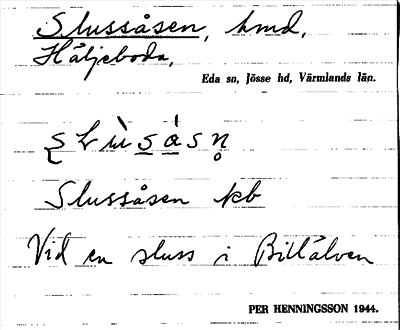 Slussåsen, hmd,
Häljeboda,
Eda sn, Jösse hd, Värmlands län.
Slussåsen kb
Vid en sluss i Billälven
PER HENNINGSSON 1944.